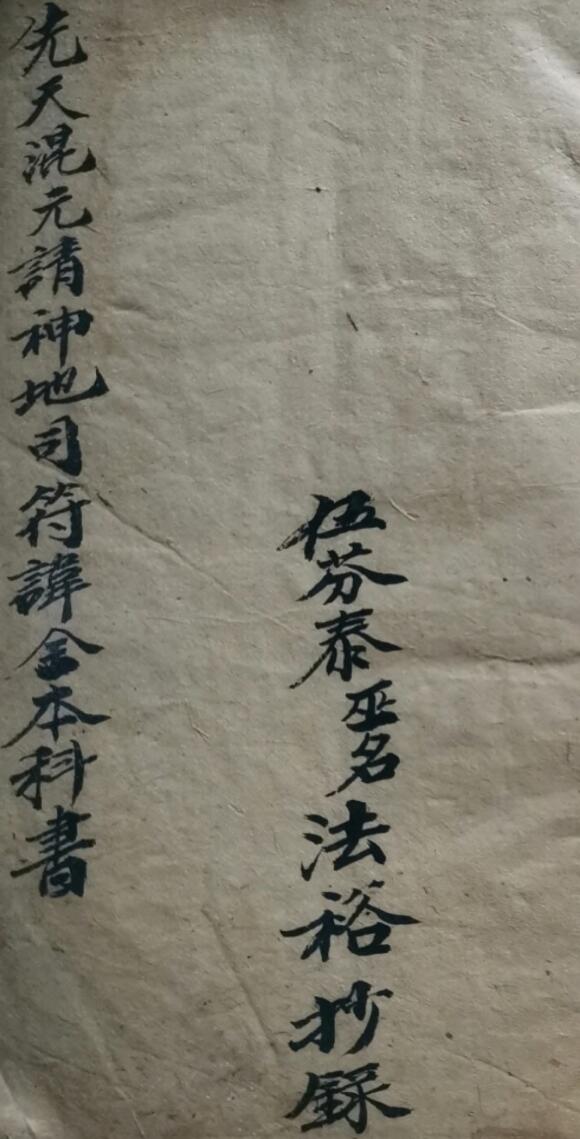 伍芬泰巫名法裕抄録
先天混元請神地司符諱全本科書